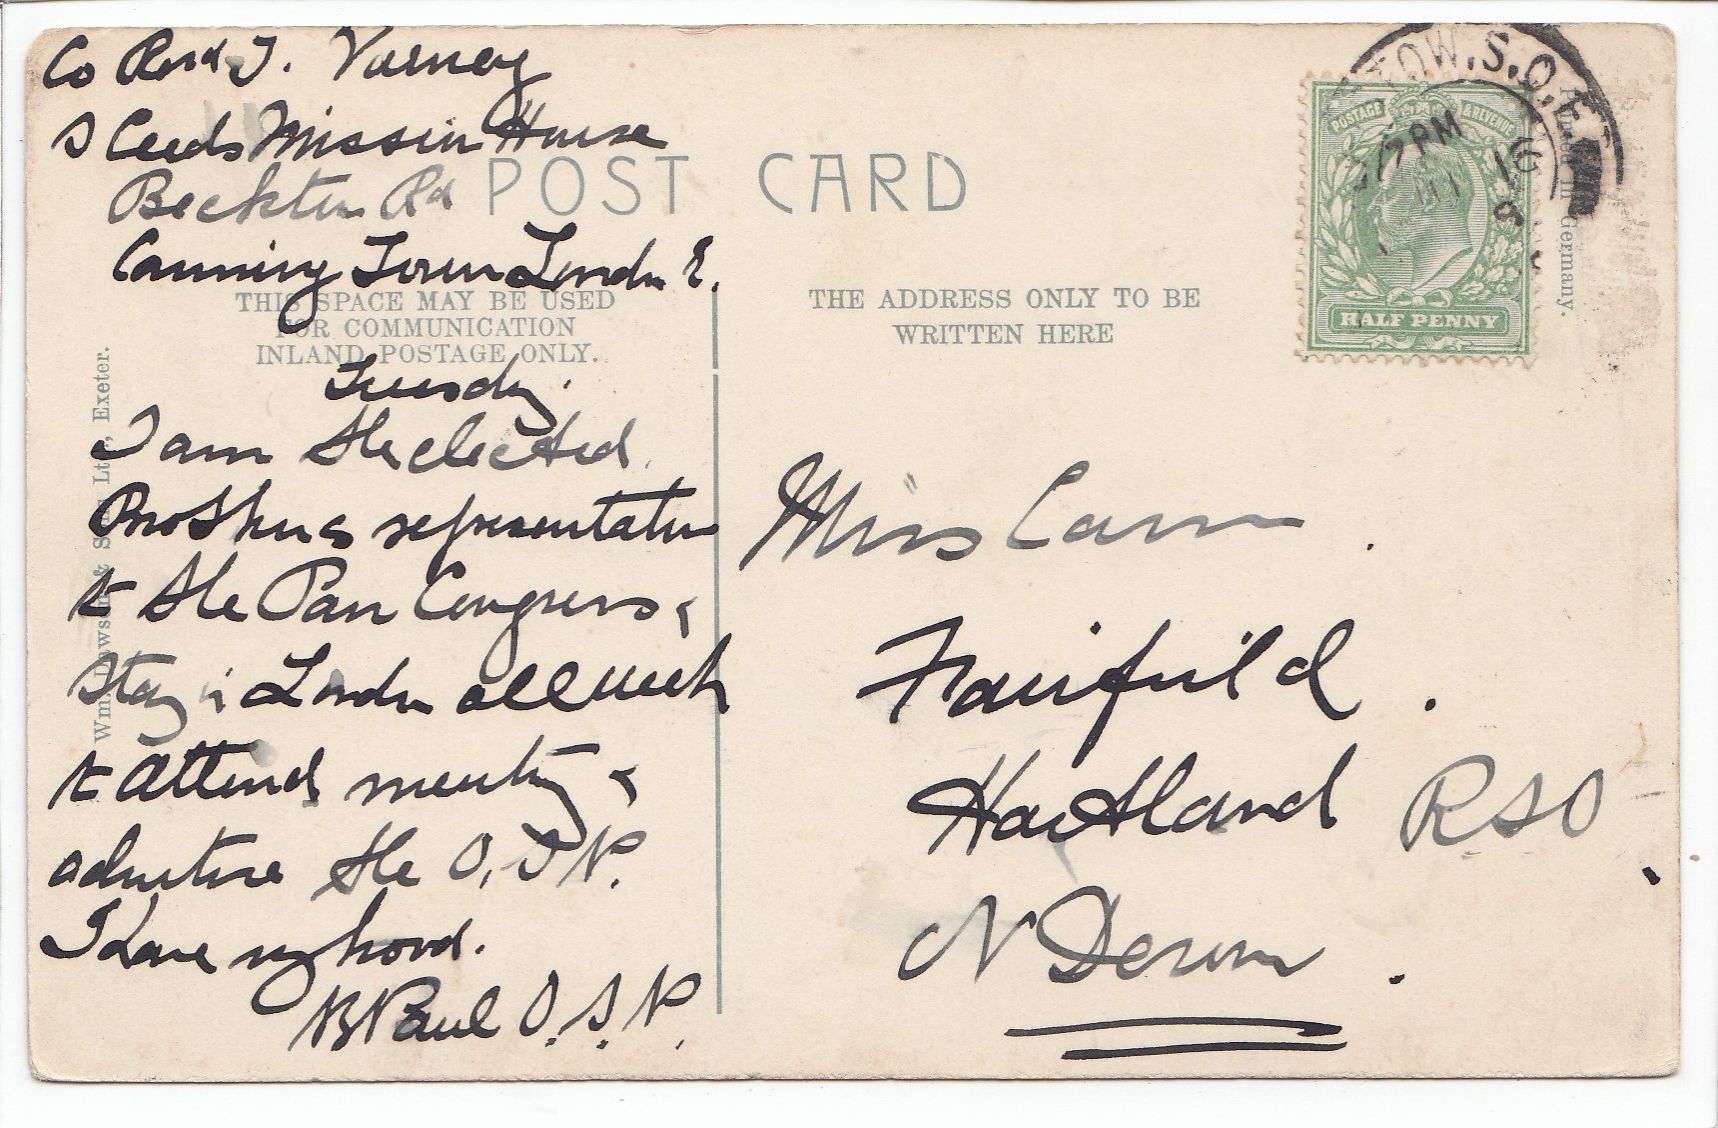 Co Revd T. Varney
S Ceeds Mission House
Beckton Rd
Canning Town London E.
Tuesday.
I am the elected
Brothers representative
to the Pan Congress &
stay in London all week
to attend meeting &
advertise the O.S.P.
I have my hood.
Paul O.S.P.
POST CARD
THIS SPACE MAY BE USED
FOR COMMUNICATION
INLAND POSTAGE ONLY.
THE ADDRESS ONLY TO BE
WRITTEN HERE
Miss Carn.
Fairfield.
Hartland RSO
N Devon.
POSTAGE & REVENUE
HALF PENNY
TOW.S.O.
7 PM
16
8
Germany.
Wm. Dawson & Sons Ltd., Exeter.